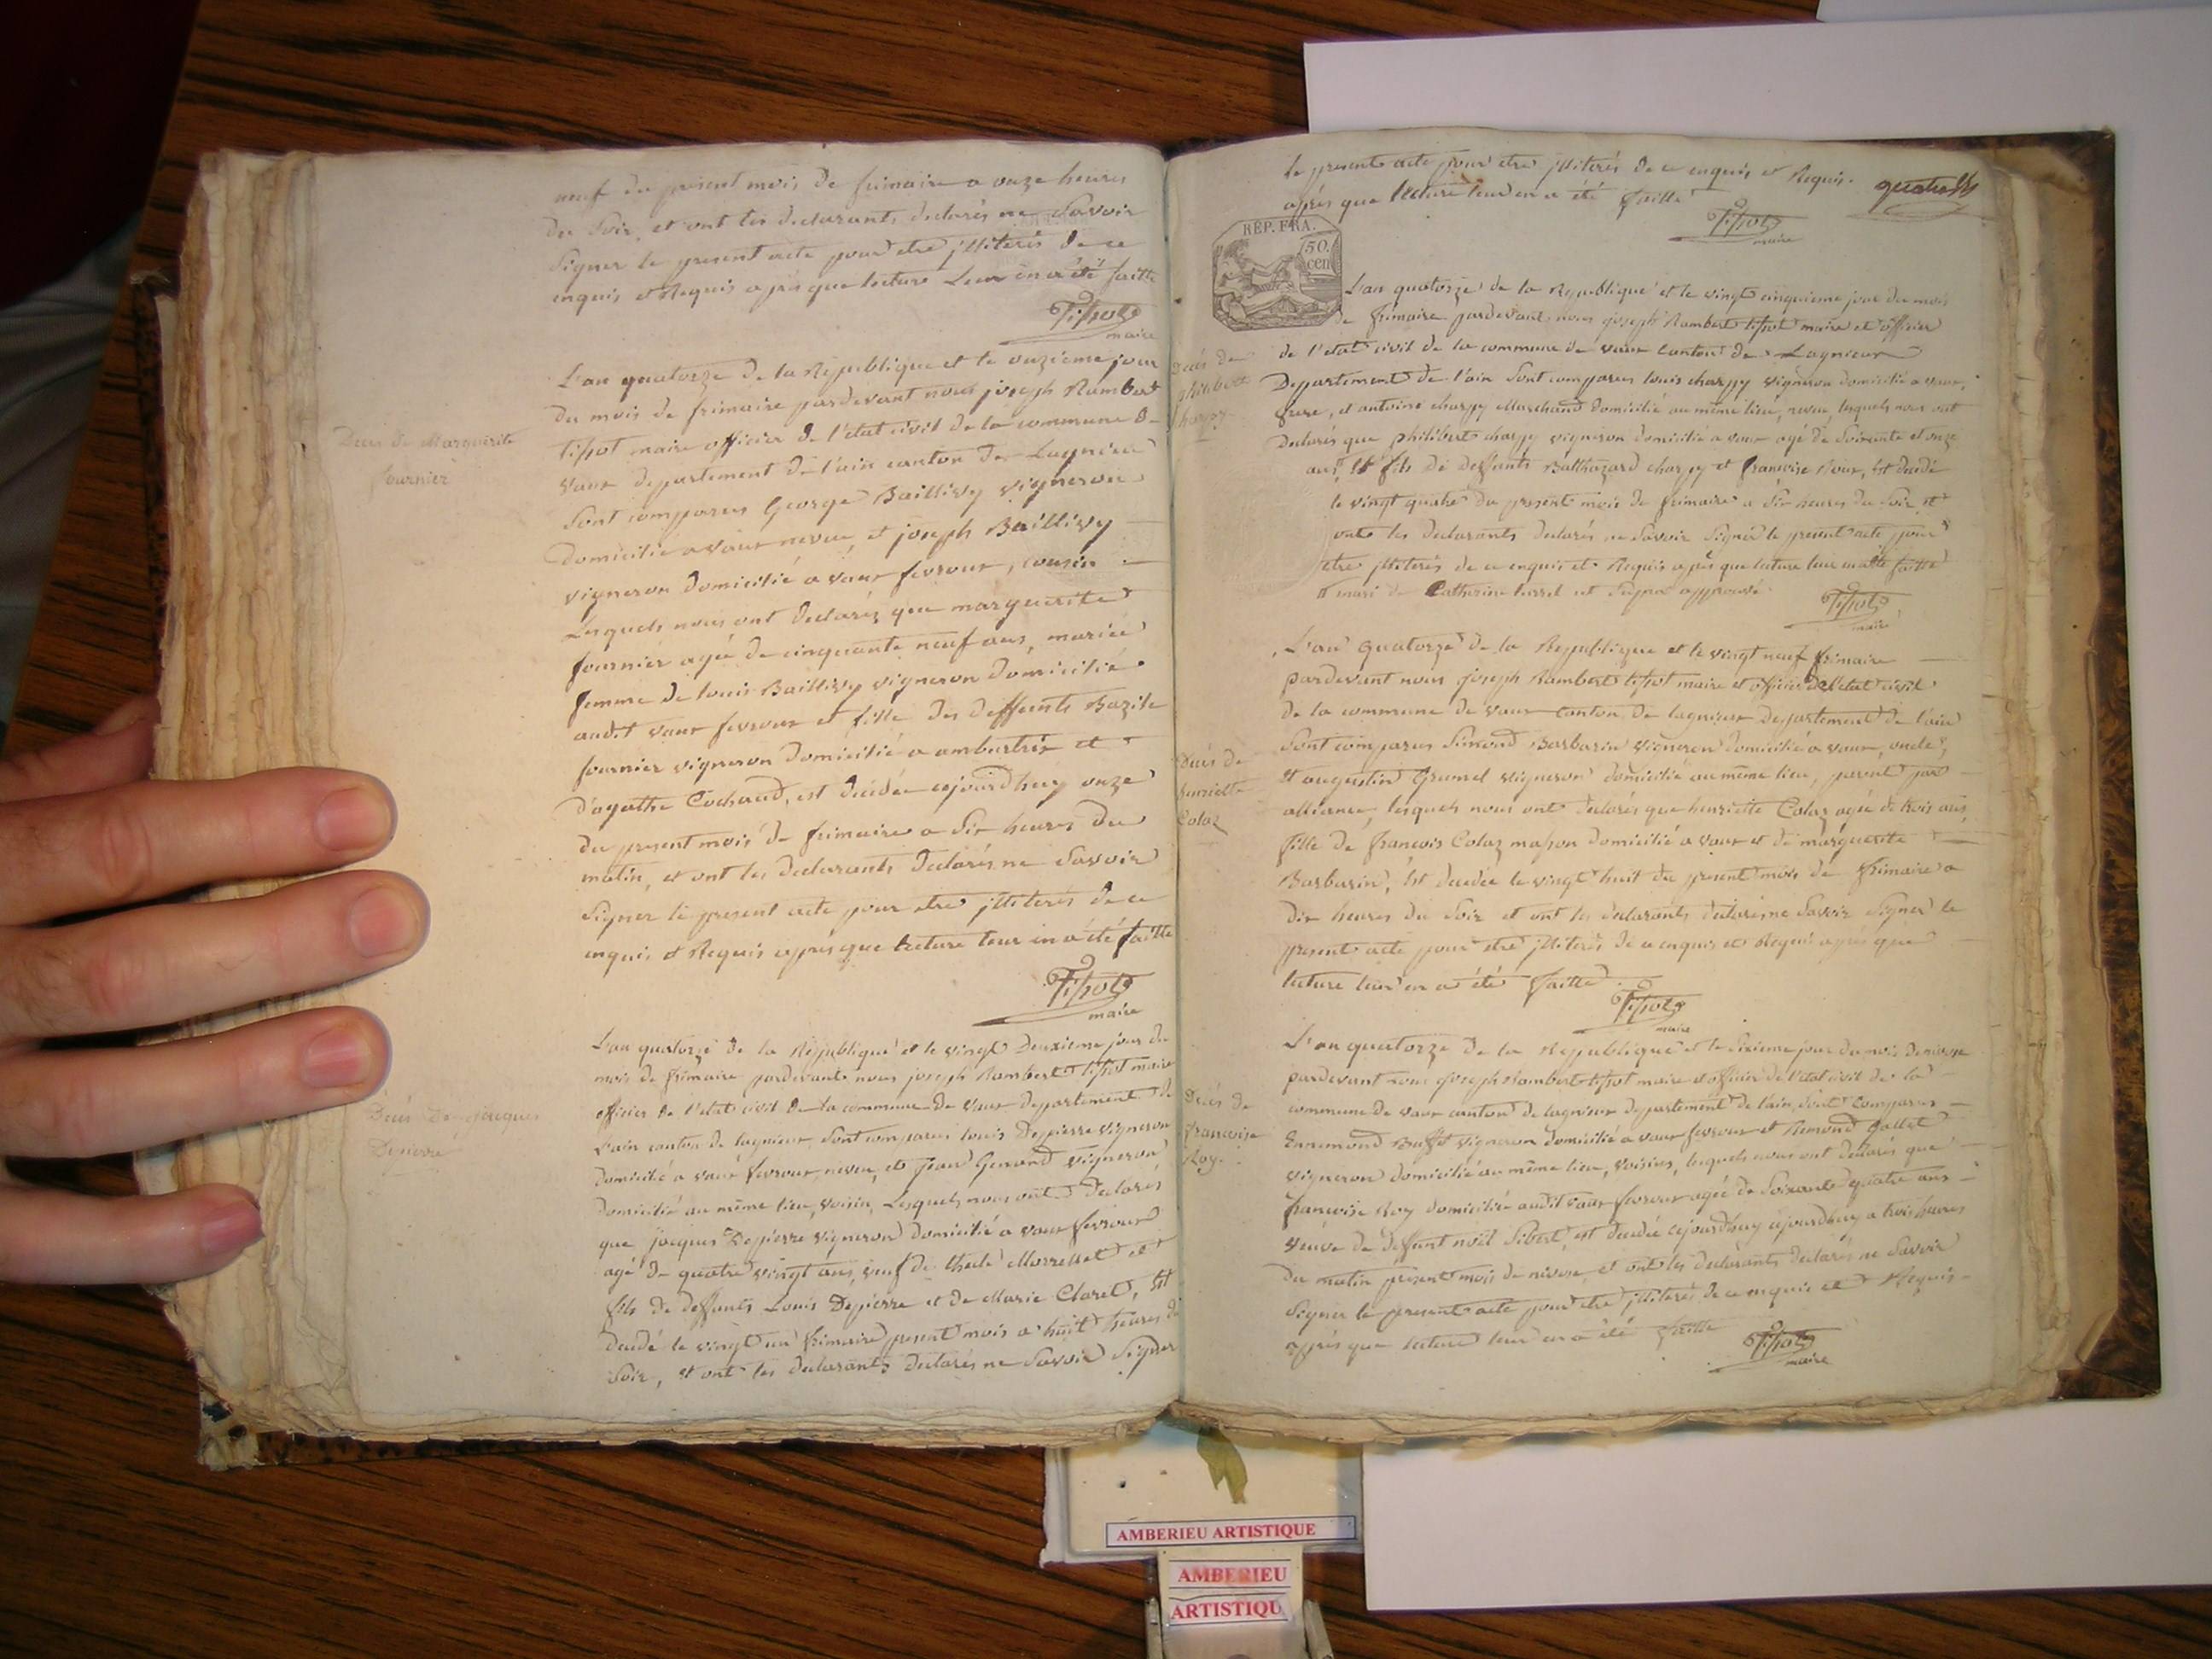 neuf du present mois de frimaire a onze heures
du Soir, et ont les declarants declarés ne Savoir
Signer le present acte pour etre jlliterés de ce
enquis et Requis après que lecture Leur en a été faitte
Tissot
maire
Decès de Marguerite
fournier
L'an quatorze de la Republique et le onzieme jour
du mois de frimaire pardevant nous joseph Rambert
tissot maire officier de l'état civil de la commune de
vaux departement de l'ain canton de Lagnieu
Sont comparus George Baillivy vigneron
domicilié a vaux neveu, et joseph Baillivy
vigneron domicilié a vaux fevroux, cousin
Lesquels nous ont declarés que marguerite
fournier agée de cinquante neuf ans, mariée
femme de louis Baillivy vigneron domicilié
audit vaux fevroux et fille des deffunts Bazile
fournier vigneron domicilié a ambutrix et
d'agathe Cochand, est decedée cejourdhuy onze
du present mois de frimaire a Six heures du
matin, et ont les declarants declarés ne Savoir
Signer le present acte pour etre jlliterés de ce
enquis et Requis après que lecture leur en a été faitte
Tissot
maire
Decès De jacques
Depierre
L'an quatorze de la Republique et le vingt Deuxieme jour du
mois de frimaire pardevant nous joseph Rambert tissot maire
officier de l'etat civil de la commune de vaux departement de
l'ain canton de lagnieu, Sont comparus louis Depierre vigneron
domicilié a vaux fevroux, neveu, et jean Genand vigneron
domicilié au même lieu, voisin, Lesquels nous ont declarés
que jacques Depierre vigneron domicilié a vaux fevroux
agé de quatre vingt ans, veuf de Morrellet et
fils de deffunts Louis Depierre et de Marie Claret, Est
decedé le vingt un frimaire present mois a huit heures du
Soir, et ont les declarants declarés ne Savoir Signer
le present acte pour etre jlliterés de ce enquis et Requis.
après que lecture leur en a été faitte
Tissot
maire
REP. FRA.
50.
cen
Decès de
philibert
charpy
L'an quatorze de la Republique et le vingt cinquieme jour du mois
de frimaire pardevant nous joseph Rambert tissot maire et officier
de l'etat civil de la commune de vaux Canton de Lagnieux
Departement de l'ain Sont comparus louis charpy vigneron domicilié a vaux,
frere, et antoine charpy Marchand domicilié au même lieu, neveu, lesquels nous ont
declarés que philibert charpy vigneron domicilié a vaux agé de Soixante et onze
ans, et fils de deffunts Balthazard charpy et françoise Roux, Est decedé
le vingt quatre du present mois de frimaire a dix heures du Soir, et
ont les declarants declarés ne Savoir Signer le present acte pour
etre jlliterés de ce enquis et Requis après que lecture leur faitte
et mari de Catherine approuvé.
Tissot
maire
Decès de
henriette
Colaz
L'an quatorze de la Republique et le vingt neuf frimaire
pardevant nous joseph Rambert tissot maire et officier de l'etat civil
de la commune de vaux Canton de lagnieux departement de l'ain
Sont comparus Simond Barbarin vigneron domicilié a vaux, oncle,
et augustin Grumel vigneron domicilié au même lieu, parent par
alliance, lesquels nous ont declarés que henriette Colaz agée de trois ans,
fille de françois Colaz masson domicilié a vaux et de marguerite
Barbarin, Est decedée le vingt huit du present mois de frimaire a
dix heures du Soir et ont les declarants declarés ne Savoir Signer le
present acte pour etre jlliterés de ce enquis et Requis après que
lecture leur en a été faitte.
Tissot
maire
Decès de
francoise
Roy.
L'an quatorze de la Republique et le Sixieme jour du mois de nivose
pardevant nous joseph Rambert tissot maire et officier de l'etat civil de la
commune de vaux canton de lagnieux departement de l'ain, Sont Comparus
Ennemond Buffet vigneron domicilié a vaux fevroux et Remond Gallet
vigneron domicilié au même lieu, voisins, lesquels nous ont declarés que
francoise Roy domiciliée audit vaux fevroux agée de Soixante quatre ans
veuve de deffunt noël Sibert, est decedée cejourdhuy cejourdhuy a trois heures
du matin present mois de nivose, et ont les declarants declarés ne Savoir
Signer le present acte pour etre jlliterés de ce enquis et Requis
après que lecture leur en a été faitte
Tissot
maire
AMBERIEU ARTISTIQUE
AMBERIEU
ARTISTIQU